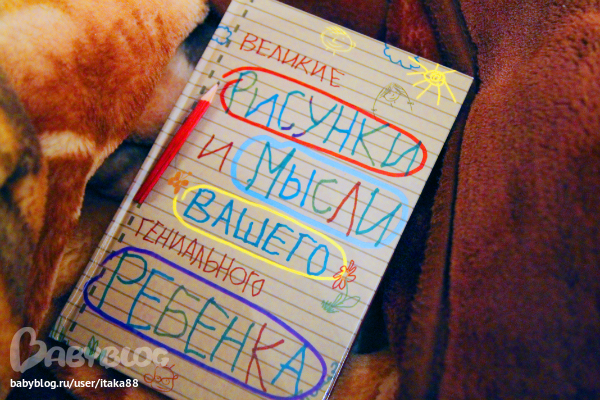 ВЕЛИКИЕ
РИСУНКИ
И МЫСЛИ
ВАШЕГО
ГЕНИАЛЬНОГО
РЕБЕНКА
BABYBLOG
babyblog.ru/user/itaka88